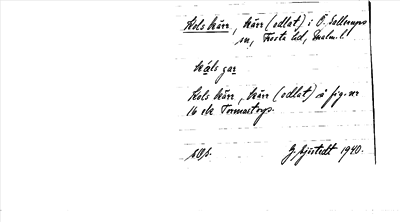 Kols kärr, kärr (odlat) i Ö. Sallerups
sn, Frosta hd, Malm. l.
kåls gar
Kols kärr, kärr (odlat) å fig. nr
16 ek Tormastorp.
G. Sjöstedt 1940.